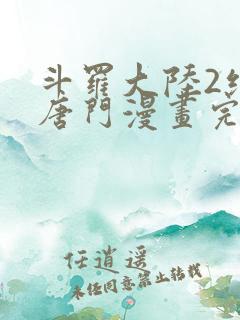 斗羅大陸2
唐門漫畫完
任逍遥
未经同意禁止转载